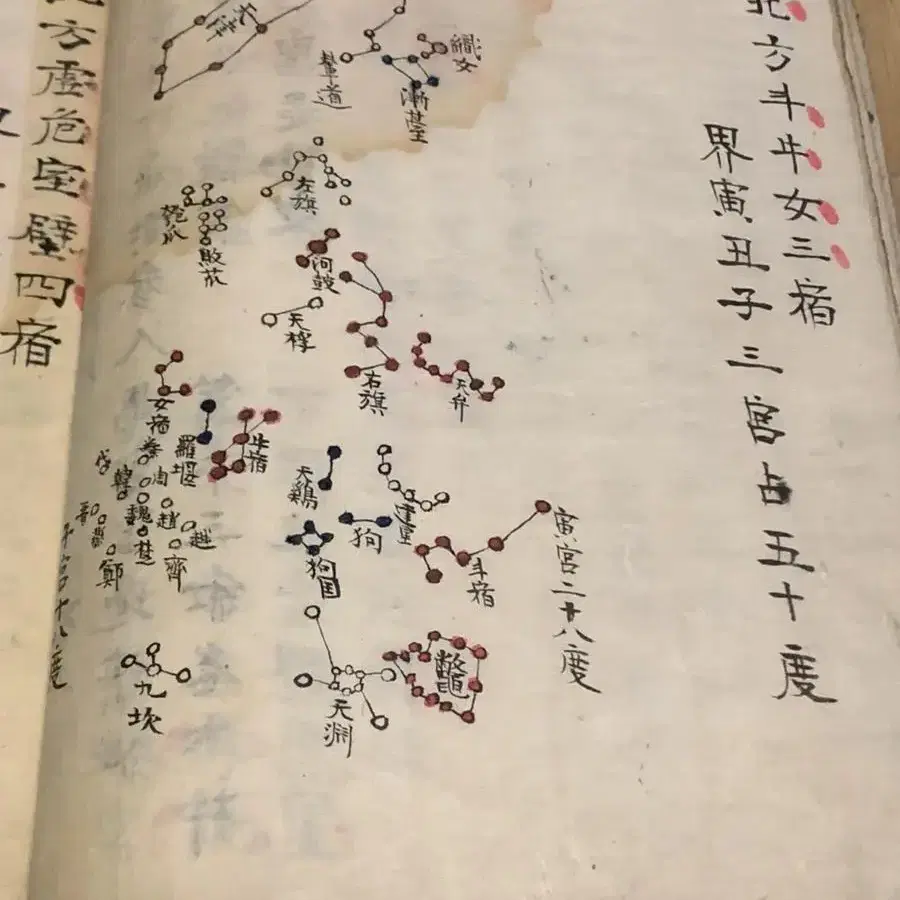 北方斗牛女三宿
界寅丑子三宮占五十度
寅宮二十八度
織女
漸臺
輦道
左旗
匏瓜
敗苽
河鼓
天桴
右旗
天弁
女宿
羅堰
牛宿
天鷄
狗
建星
狗国
斗宿
秦
韓
魏
趙
越
楚
齊
鄭
九坎
天渊
鼈
子宮十八度
方虛危室壁四宿